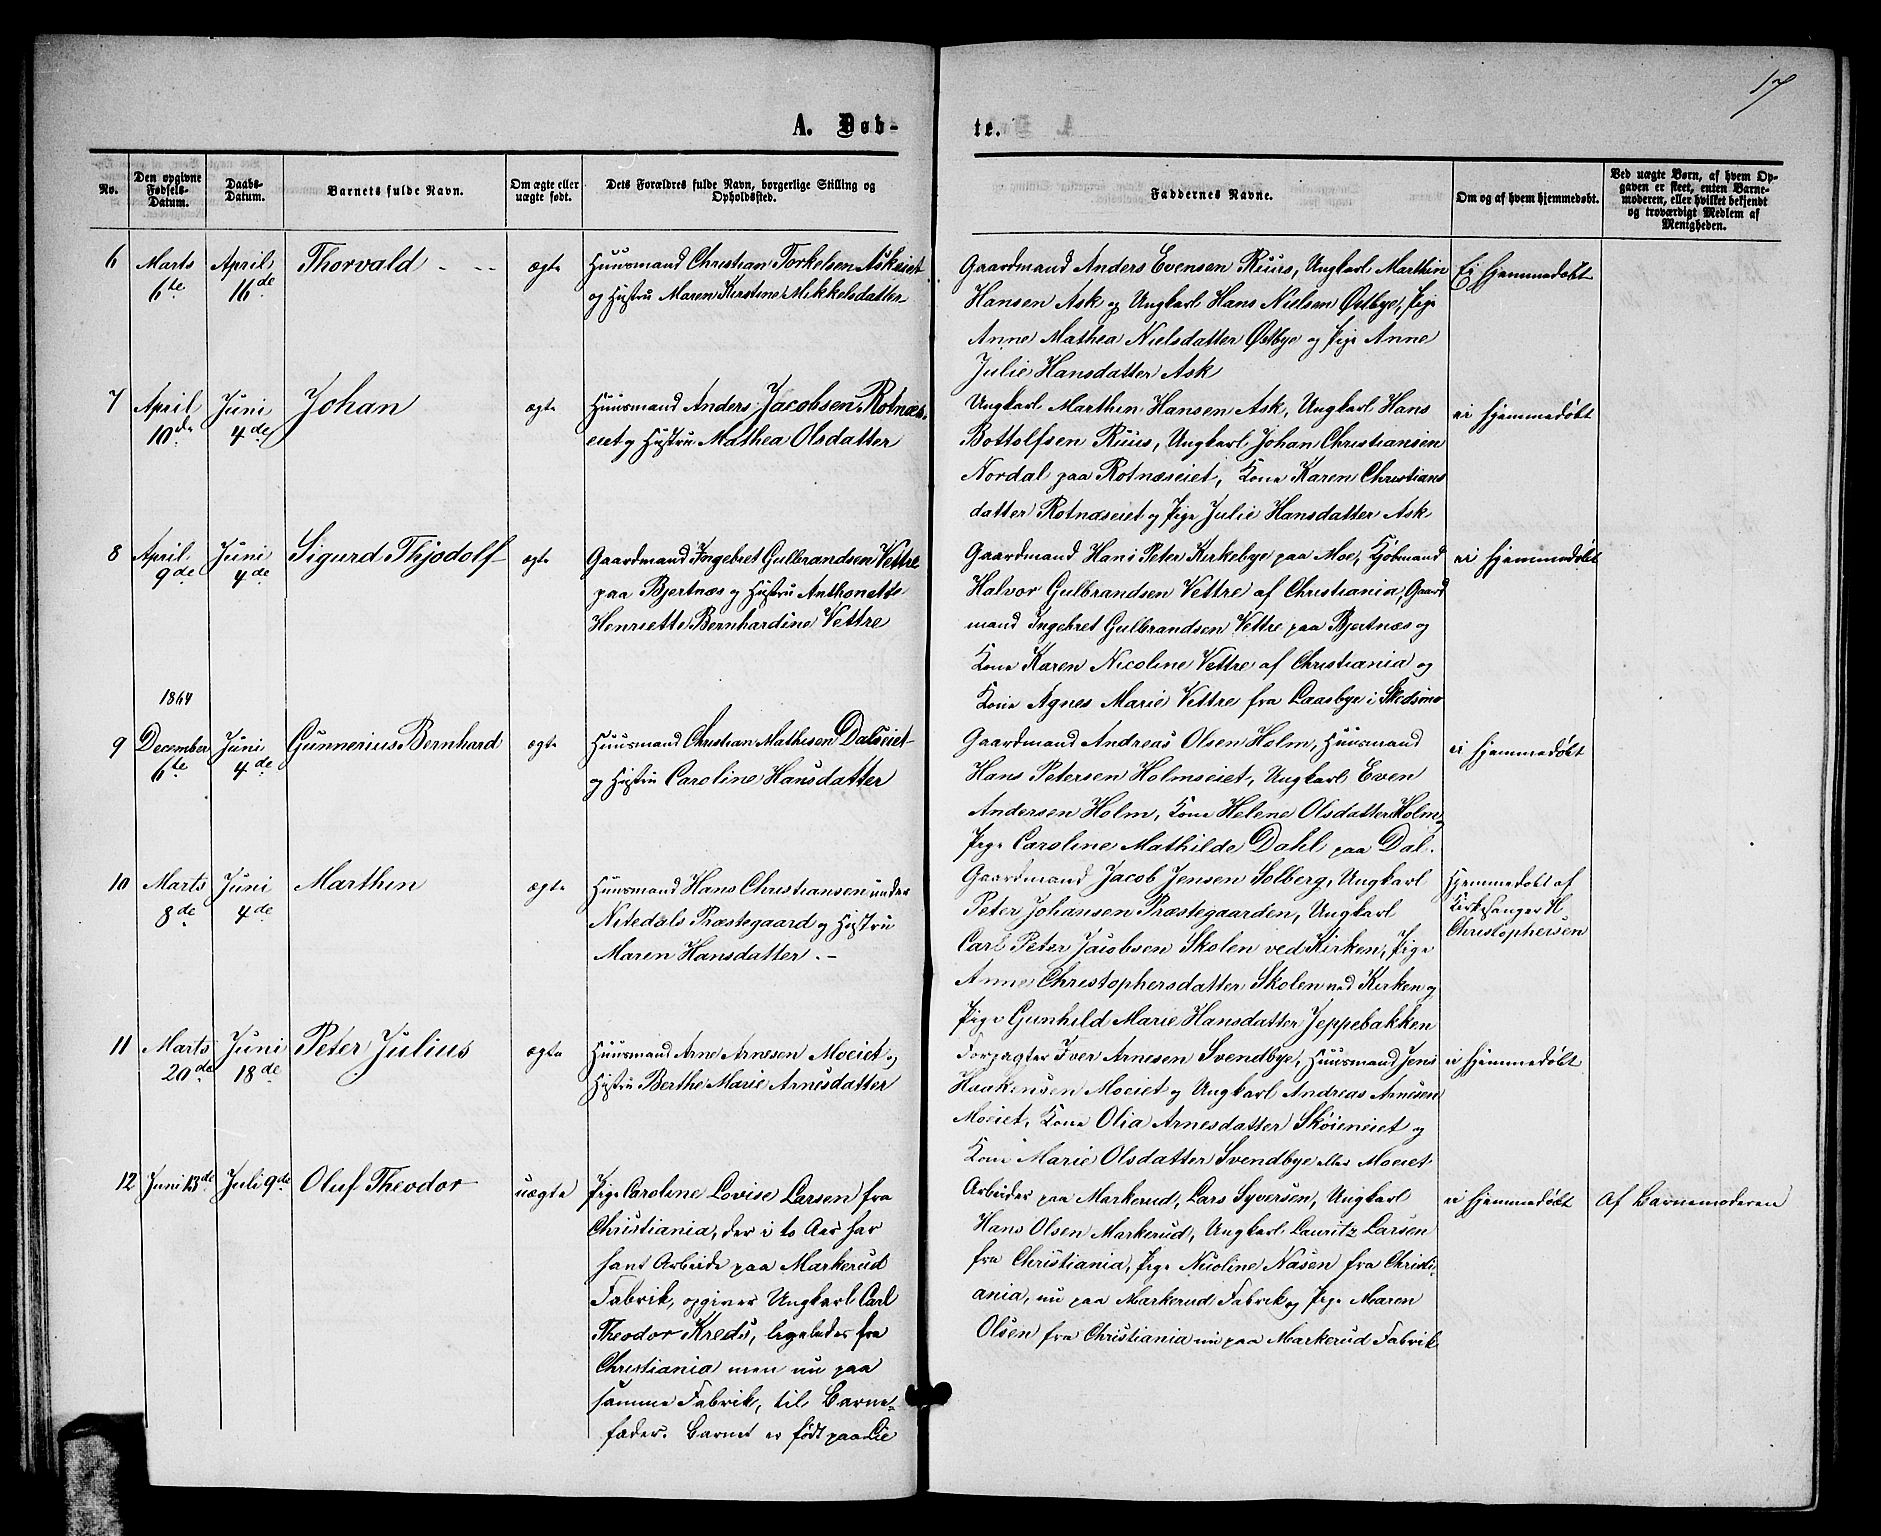 17
A. Døb-
te.
No.
Den opgivne Fødsels-Datum.
Daabs-Datum.
Barnets fulde Navn.
Om ægte eller uægte født.
Dets Forældres fulde Navn, borgerlige Stilling og Opholdssted.
Faddernes Navne.
Om og af hvem hjemmedøbt.
Ved uægte Børn, af hvem Opgaven er skeet, enten Barnemoderen, eller hvilket bekjendt og troværdigt Medlem af Menigheden.
6
Marts 6te
April 16de
Thorvald
ægte
Huusmand Christian Torkelsen Askeiet
og Hustru Maren Kirstine Mikkelsdatter
Gaardmand Anders Evensen Ruus, Ungkarl Marthin
Hansen Ask og Ungkarl Hans Nielsen Østbye, Pige
Anne Mathea Nielsdatter Østbye og Pige Anne
Julie Hansdatter Ask
Ej hjemmedøbt
7
April 10de
Juni 4de
Johan
ægte
Huusmand Anders Jacobsen Rotnæs-
eiet og Hustru Mathea Olsdatter
Ungkarl Marthin Hansen Ask, Ungkarl Hans
Bottolfsen Ruus, Ungkarl Johan Christiansen
Nordal paa Rotnæseiet, Kone Karen Christians
datter Rotnæseiet og Pige Julie Hansdatter Ask
ei hjemmedøbt
8
April 9de
Juni 4de
Sigurd Thjodolf
ægte
Gaardmand Ingebret Gulbrandsen Vettre
paa Bjertnæs og Hustru Anthonette
Henriette Bernhardine Vettre
Gaardmand Hans Peter Kirkebye paa Moe, Kjøbmand
Halvor Gulbrandsen Vettre af Christiania, Gaard
mand Ingebret Gulbrandsen Vettre paa Bjertnæs og
Kone Karen Nicoline Vettre af Christiania og
Kone Agnes Marie Vettre fra Laasbye i Skedsmo
ei hjemmedøbt
1864
9
December 6te
Juni 4de
Gunnerius Bernhard
ægte
Huusmand Christian Mathisen Dalseiet
og Hustru Caroline Hansdatter
Gaardmand Andreas Olsen Holm, Huusmand
Hans Petersen Holmseiet, Ungkarl Even
Andersen Holm, Kone Helene Olsdatter Holm,
Pige Caroline Mathilde Dahl paa Dal.
ei hjemmedøbt
10
Marts 8de
Juni 4de
Marthin
ægte
Huusmand Hans Christiansen under
Nitedals Præstegaard og Hustru
Maren Hansdatter
Gaardmand Jacob Jensen Solberg, Ungkarl
Peter Johansen Præstegaarden, Ungkarl
Carl Peter Jacobsen Skolen ved Kirken, Pige
Anne Christophersdatter Skolen ved Kirken og
Pige Gunhild Marie Hansdatter Jeppebakken
Hjemmedøbt af
Kirkesanger H.
Christophersen
11
Marts 20de
Juni 18de
Peter Julius
ægte
Huusmand Arne Arnesen Moeiet og
Hustru Berthe Marie Arnesdatter
Forpagter Iver Arnesen Svendbye, Huusmand Jens
Haakensen Moeiet og Ungkarl Andreas Arnesen
Moeiet, Kone Olia Arnesdatter Skøieneiet og
Kone Marie Olsdatter Svendbye eller Moeiet
ei hjemmedøbt
12
Juni 13de
Juli 9de
Oluf Theodor
uægte
Pige Caroline Lovise Larsen fra
Christiania, der i to Aar har
havt Arbeide paa Markerud
Fabrik, opgiver Ungkarl Carl
Theodor Kreds, ligeledes fra
Christiania men nu paa
samme Fabrik, til Barne-
fader. Barnet er født paa
Arbeider paa Markerud, Lars Syversen, Ungkarl
Hans Olsen Markerud, Ungkarl Lauritz Larsen
fra Christiania, Pige Nicoline Nasen fra Christi-
ania, nu paa Markerud Fabrik og Pige Maren
Olsen fra Christiania nu paa Markerud Fabrik
ei hjemmedøbt
Af Barnemoderen